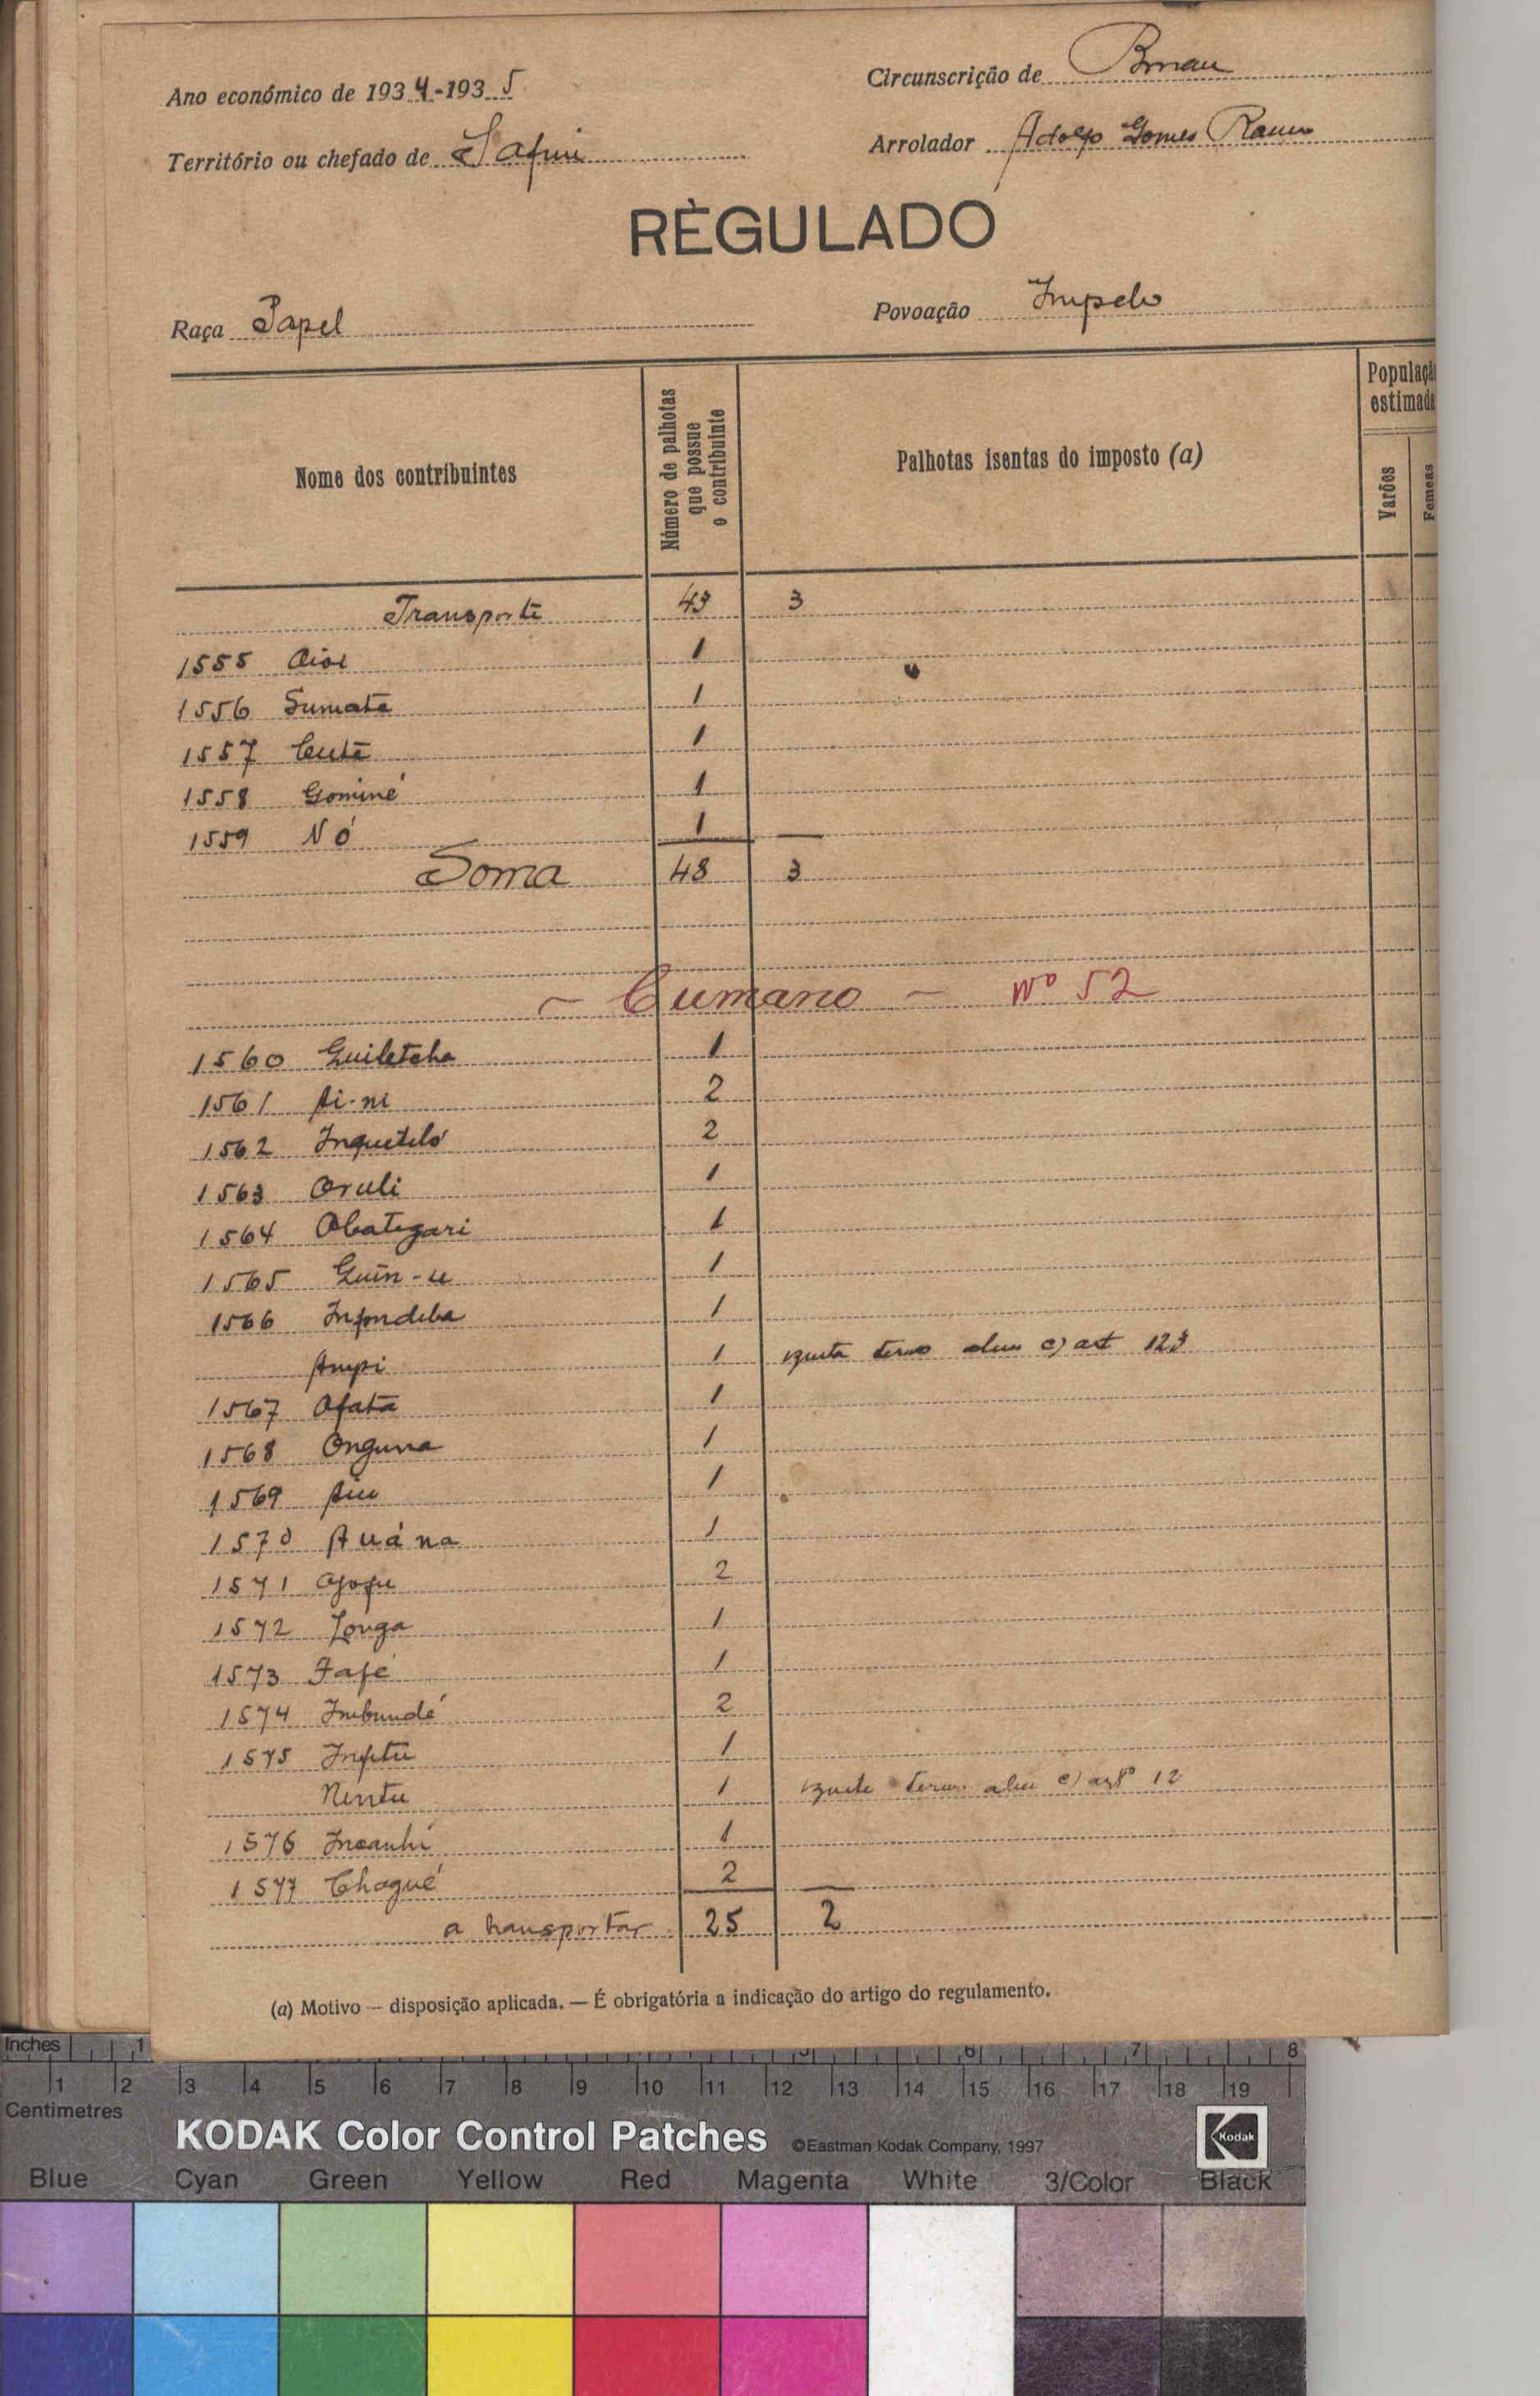 Ano económico de 1934-1935
Circunscrição de Bissau
Território ou chefado de Safim
Arrolador Adolfo Gomes Ramos
RÈGULADO
Raça Papel
Povoação Impelo
Nome dos contribuintes
Número de palhotas que possue o contribuinte
Palhotas isentas do imposto (a)
Populaçã
estimada
Varões
Femeas
Transporte 43 3
1555 Aioi 1
1556 Sumate 1
1557 Cuté 1
1558 Gominé 1
1559 Nó 1
Soma 48 3
- Cumano - Nº 52
1560 Guiletcha 1
1561 Ai-ni 2
1562 Inquiteló 2
1563 Oruli 1
1564 Obategari 1
1565 Guin-u 1
1566 Infondeba 1
Ampi 1 c) art 123
1567 Ofata 1
1568 Onguna 1
1569 1
1570 Auána 1
1571 Ojofu 2
1572 Jonga 1
1573 Fafé 1
1574 Imbundé 2
1575 1
Nentu 1 c) artº 12
1576 Incanhi 1
1577 Chagué 2
a transportar 25 2
(a) Motivo — disposição aplicada. — É obrigatória a indicação do artigo do regulamento.
Inches 1 5 6 7 8
1 2 3 4 5 6 7 8 9 10 11 12 13 14 15 16 17 18 19
Centimetres
KODAK Color Control Patches ©Eastman Kodak Company, 1997 Kodak
Blue Cyan Green Yellow Red Magenta White 3/Color Black